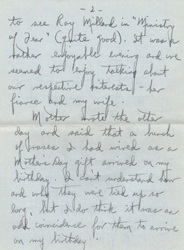 - 2 -
to see Ray Milland in "Ministry
of Fear" (quite good). It was a
rather enjoyable evening and we
seemed to enjoy talking about
our respective interests - her
fiance and my wife.
Mother wrote the other
day and said that a bunch
of roses I had wired as a
Mother's Day gift arrived on my
birthday. I can't understand how
and why they were tied up so
long, but I do think it was an
odd coincidence for them to arrive
on my birthday